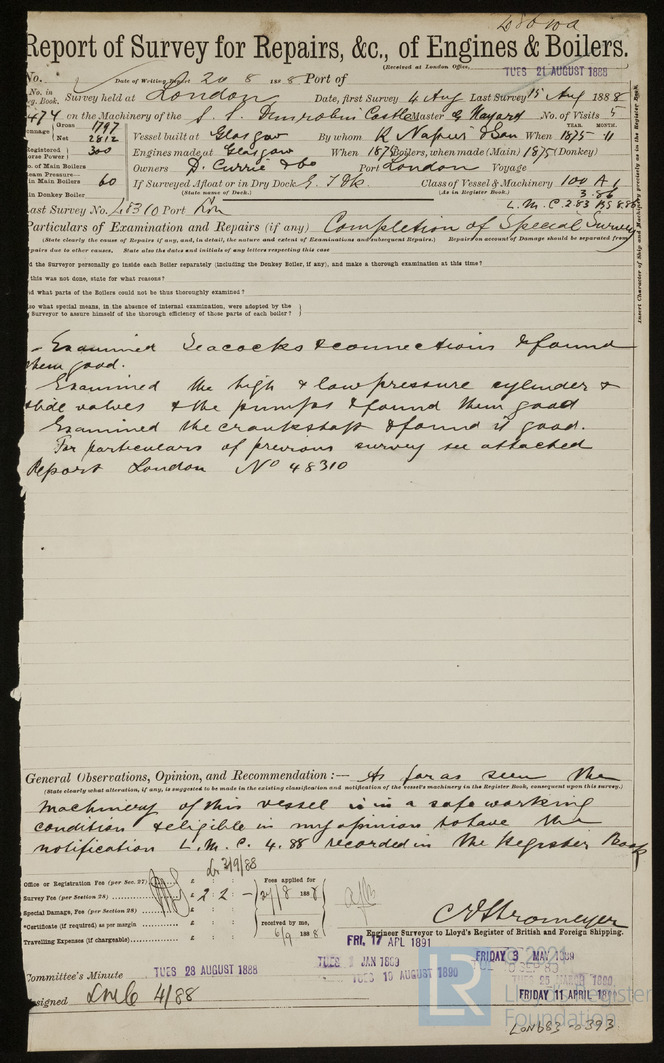 Report of Survey for Repairs, &c., of Engines & Boilers.
(Received at London Office, TUES 21 AUGUST 1888
No. Date of Writing Report 20 8 1888 Port of
No. in Reg. Book. Survey held at London Date, first Survey 4 Aug Last Survey 15 Aug 1888
474 on the Machinery of the S.S. Dunrobin Castle Master G Hayard No. of Visits 5
Tonnage Gross 1797 Net 2812 Vessel built at Glasgow By whom R Napier & Son When 1875 YEAR. 11 MONTH.
Registered Horse Power 300 Engines made at Glasgow When 1875 Boilers, when made (Main) 1875 (Donkey)
No. of Main Boilers Owners D. Currie & Co Port London Voyage
Steam Pressure in Main Boilers 60 If Surveyed Afloat or in Dry Dock E. I Dk. Class of Vessel & Machinery 100 A 1
in Donkey Boiler (State name of Dock.) (As in Register Book.) 3.86
Last Survey No. 48310 Port Lon L.M.C. 2.83 BS 8.86
Particulars of Examination and Repairs (if any) Completion of Special Survey
(State clearly the cause of Repairs if any, and, in detail, the nature and extent of Examinations and subsequent Repairs.) Repairs on account of Damage should be separated from
Repairs due to other causes, State also the dates and initials of any letters respecting this case
Did the Surveyor personally go inside each Boiler separately (including the Donkey Boiler, if any), and make a thorough examination at this time?
If this was not done, state for what reasons?
And what parts of the Boilers could not be thus thoroughly examined?
Also what special means, in the absence of internal examination, were adopted by the
Surveyor to assure himself of the thorough efficiency of those parts of each boiler?
Insert Character of Ship and Machinery precisely as in the Register Book.
Examined Seacocks & connections & found
them good.
Examined the high & low pressure cylinder &
slide valves & the pumps & found them good
Examined the crankshaft & found it good.
For particulars of previous survey see attached
Report London No 48310
General Observations, Opinion, and Recommendation :— As far as seen the
(State clearly what alteration, if any, is suggested to be made in the existing classification and notification of the vessel's machinery in the Register Book, consequent upon this survey.)
machinery of this vessel is in a safe working
condition & eligible in my opinion to have the
notification L.M.C. 4.88 recorded in the Register Book
Lr 3/9/88
Office or Registration Fee (per Sec. 27) £ Fees applied for
Survey Fee (per Section 28) £ 2 2 - 24/8 1888
Special Damage Fee (per Section 28) £
*Certificate (if required) as per margin £ received by me,
Travelling Expenses (if chargeable) £ 6/9 1888
C E Stromeyer
Engineer Surveyor to Lloyd's Register of British and Foreign Shipping.
FRI, 17 APL 1891
FRIDAY 3 MAY 1889
Committee's Minute TUES 28 AUGUST 1888
TUES JAN 1889
TUES 19 AUGUST 1890
TUES 25 MARCH 1890
FRIDAY 11 APRIL 1890
Assigned LMC 4/88
© 2021
LR
Lloyd's Register
Foundation
LON683-0393